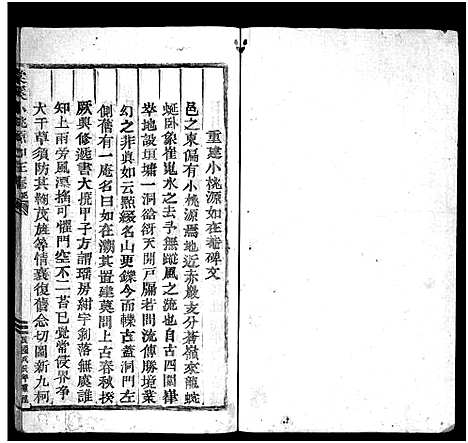 重建小桃源如在菴碑文
邑之東偏有小桃源焉地近赤巖支分蒼嶺來龍蜿
蜒臥象崔嵬水之去予無蹤風之流也自古四闢崋
崒地設垣墉一洞谽谺天開戸牖若問流傳勝境業
幻之非眞如云緩名山更鑠今而轢古蓋洞門左
側舊有一庵名曰如在潮其置建莫問上古春秋揆
厥興修遞書大撓甲子方謂璜房紺宇剥落無虞誰
知上雨旁風漂搖可懼門空不二苔已覺常侵界爭
大千草須防其鞠茂族等情衰復舊念切圖新九柯